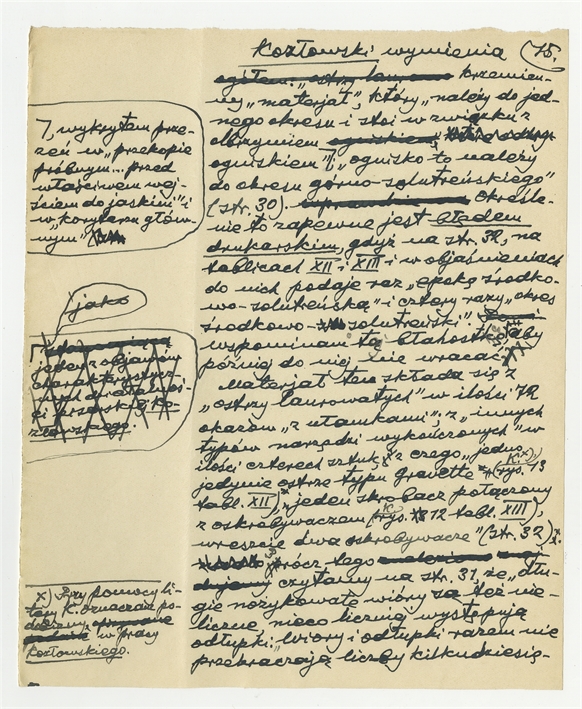 Kozłowski wymienia
75.
krzemien-
ny „materjał”, który „należy do jed-
nego okresu i stoi w związku z
olbrzymiem
ogniskiem”, „ognisko to należy
do okresu górno-solutreńskiego”
(str. 30). Określe-
nie to zapewne jest błędem
drukarskim, gdyż na str. 32, na
tablicach XII i XIII i w objaśnieniach
do nich podaje raz „epokę środko-
wo-solutreńską” i cztery razy „okres
środkowo-solutreński”.
wspominam tę błahostkę, aby
później do niej nie wracać.
Materjał ten składa się z
„ostrzy laurowatych” w ilości 72
okazów „z ułamkami”, z „innych
typów narzędzi wykończonych” w
ilości czterech sztuk, z czego „jedno
jedynie ostrze typu gravette (rys. 13
tabl. XII), jeden skrobacz połączony
z oskrobywaczem (rys. 12 tabl. XIII),
wreszcie dwa oskrobywacze” (str. 32).
prócz tego
czytamy na str. 31, że „dłu-
gie nożykowate wióry są też nie-
liczne, nieco liczniej występują
odłupki.” Wióry i odłupki razem nie
przekraczają liczby kilkudziesię-
wykrytem prze-
zeń w „przekopie
próbnym... przed
właściwem wej-
ściem do jaskini” i
w „korytarzu głów-
nym”
jako
jeden z objawów
charakterystycz-
nych
pisarskiej Ko-
złowskiego.
x) Przy pomocy li-
tery K. oznaczam po-
dobizny,
w pracy
Kozłowskiego.